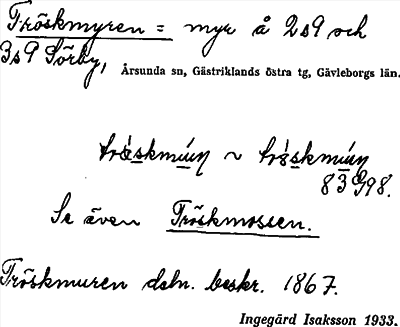 Tröskmyren = myr å 2s9 och
3s9 Sörby,
Årsunda sn, Gästriklands östra tg, Gävleborgs län.
83G98.
Se även Tröskmossen.
Tröskmuren dsbn. beskr. 1867.
Ingegärd Isaksson 1933.